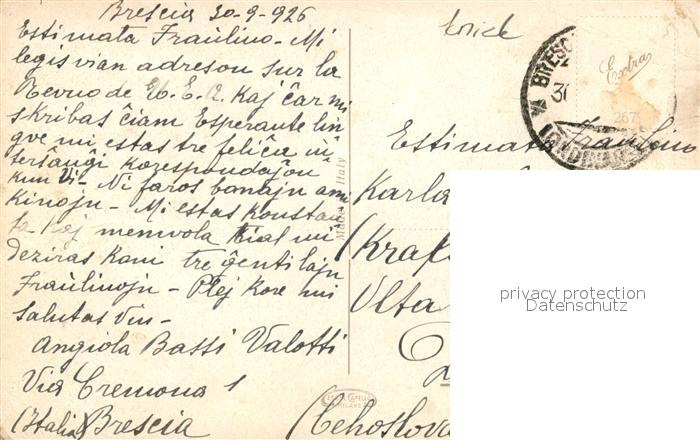 Brescia 30-9-926
Estimata Fraŭlino - Mi
legis vian adreson sur la
Revuo de U.E.A. kaj ĉar mi
skribas ĉiam Esperante lin
gve mi estas tre feliĉa in
terŝanĝi korespondaĵon
kun Vi - Ni faros bonajn ami
kinojn - Mi estas konstan
ta kaj memvola kial mi
deziras koni tre ĝentilajn
Fraŭlinojn - Plej kore mi
salutas Vin -
Angiola Bassi Valotti
Via Cremona 1
(Italia) Brescia
Extra
267
BRESC
30
Estimata Fraulino
Karla
(Kraf
Vlta
(Cehoslova
Made in Italy
MILANO
privacy protection
Datenschutz